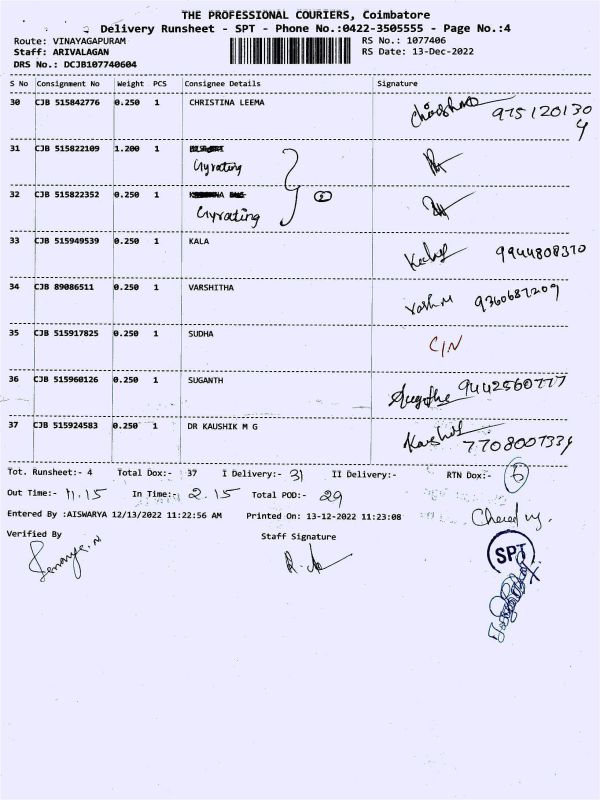 THE PROFESSIONAL COURIERS, Coimbatore
Delivery Runsheet - SPT - Phone No.:0422-3505555 - Page No.:4
Route: VINAYAGAPURAM
Staff: ARIVALAGAN
DRS No.: DCJB107740604
RS No.: 1077406
RS Date: 13-Dec-2022
S No Consignment No Weight PCS Consignee Details Signature
30 CJB 515842776 0.250 1 CHRISTINA LEEMA 975120130
4
31 CJB 515822109 1.200 1
Gyrating
32 CJB 515822352 0.250 1
Gyrating
33 CJB 515949539 0.250 1 KALA 9944808310
34 CJB 89086511 0.250 1 VARSHITHA 9360687209
35 CJB 515917825 0.250 1 SUDHA C/N
36 CJB 515960126 0.250 1 SUGANTH 9442560777
37 CJB 515924583 0.250 1 DR KAUSHIK M G 7708007339
Tot. Runsheet:- 4 Total Dox:- 37 I Delivery:- 31 II Delivery:- RTN Dox:- 6
Out Time:- 11.15 In Time:- 2.15 Total POD:- 29
Entered By :AISWARYA 12/13/2022 11:22:56 AM Printed On: 13-12-2022 11:23:08
Verified By Staff Signature
SPT